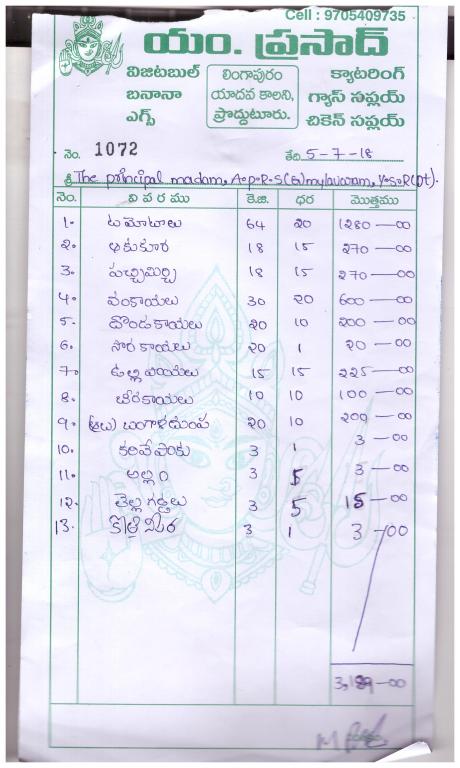 Cell : 9705409735
యం. ప్రసాద్
విజిటబుల్ లింగాపురం క్యాటరింగ్
బనానా యాదవ కాలని, గ్యాస్ సప్లయ్
ఎగ్స్ ప్రొద్దుటూరు. చికెన్ సప్లయ్
నెం. 1072 తేది 5-7-18
శ్రీ The principal madam, A.P.R.S(G) mylavaram, Y.S.R(Dt).
నెం. వివరము కె.జి. ధర మొత్తము
1. టమోటాలు 64 20 1280-00
2. ఆకుకూర 18 15 270-00
3. పచ్చిమిర్చి 18 15 270-00
4. వంకాయలు 30 20 600-00
5. దొండకాయలు 20 10 200-00
6. సొరకాయలు 20 1 20-00
7. ఉల్లిపాయలు 15 15 225-00
8. బీరకాయలు 10 10 100-00
9. (ఆలు) బంగాళదుంప 20 10 200-00
10. కరివేపాకు 3 1 3-00
11. అల్లం 3 5 3-00
12. తెల్లగడ్డలు 3 5 15-00
13. కొత్తిమీర 3 1 3-00
3,189-00